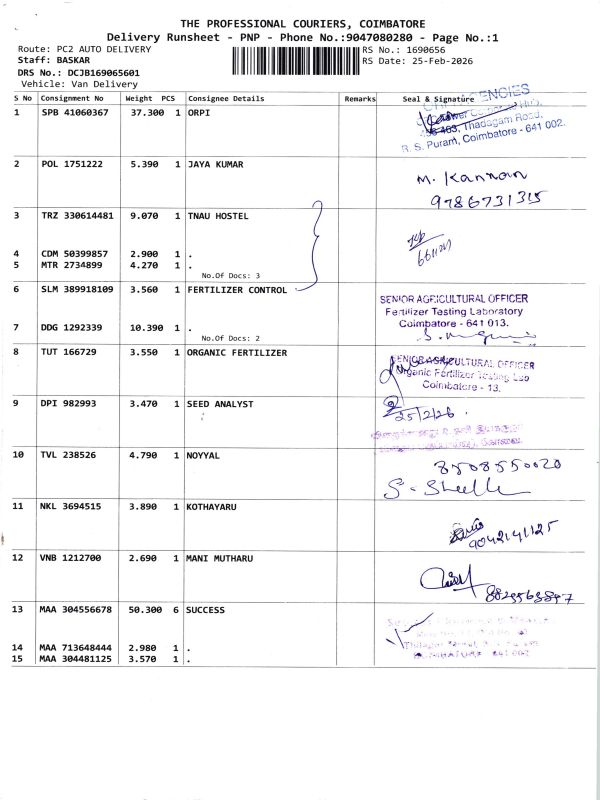 THE PROFESSIONAL COURIERS, COIMBATORE
Delivery Runsheet - PNP - Phone No.:9047080280 - Page No.:1
Route: PC2 AUTO DELIVERY
RS No.: 1690656
Staff: BASKAR
RS Date: 25-Feb-2026
DRS No.: DCJB169065601
Vehicle: Van Delivery
S No Consignment No Weight PCS Consignee Details Remarks Seal & Signature
1 SPB 41060367 37.300 1 ORPI
AGENCIES
Thadagam Road,
R. S. Puram, Coimbatore - 641 002.
2 POL 1751222 5.390 1 JAYA KUMAR
M. Kannan
9786731315
3 TRZ 330614481 9.070 1 TNAU HOSTEL
4 CDM 50399857 2.900 1 .
5 MTR 2734899 4.270 1 .
No.Of Docs: 3
6 SLM 389918109 3.560 1 FERTILIZER CONTROL
SENIOR AGRICULTURAL OFFICER
Fertilizer Testing Laboratory
Coimbatore - 641 013.
7 DDG 1292339 10.390 1 .
No.Of Docs: 2
8 TUT 166729 3.550 1 ORGANIC FERTILIZER
SENIOR AGRICULTURAL OFFICER
Organic Fertilizer Testing Lab
Coimbatore - 13.
9 DPI 982993 3.470 1 SEED ANALYST
25/2/26.
10 TVL 238526 4.790 1 NOYYAL
8508550020
11 NKL 3694515 3.890 1 KOTHAYARU
9042141125
12 VNB 1212700 2.690 1 MANI MUTHARU
13 MAA 304556678 50.300 6 SUCCESS
14 MAA 713648444 2.980 1 .
15 MAA 304481125 3.570 1 .